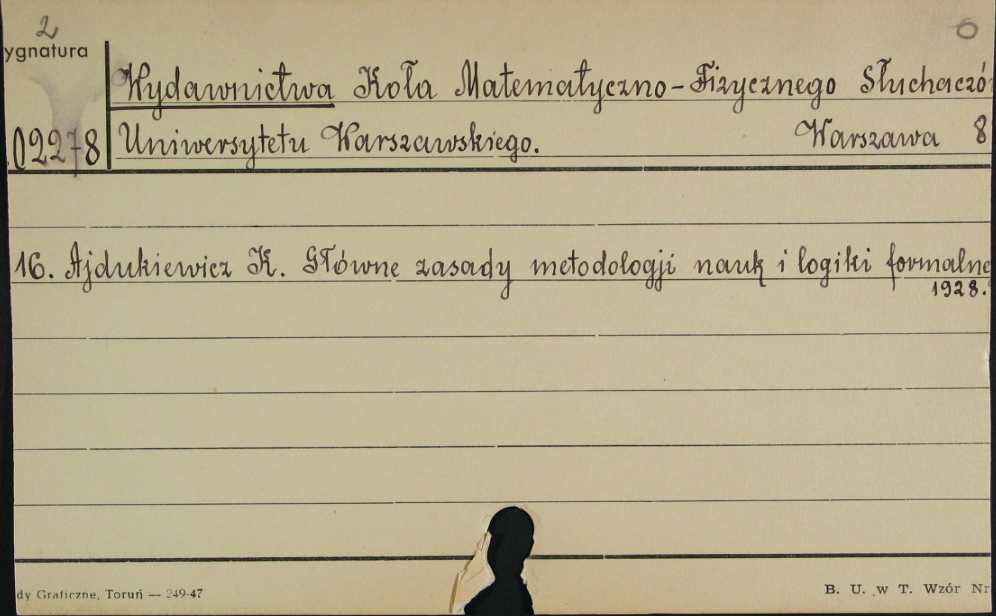 2
ygnatura
0
Wydawnictwa Koła Matematyczno-Fizycznego Słuchaczó
02278 Uniwersytetu Warszawskiego. Warszawa 8
16. Ajdukiewicz K. Główne zasady metodologji nauk i logiki formalne
1928.
dy Graficzne, Toruń — 249-47
B. U. w T. Wzór Nr